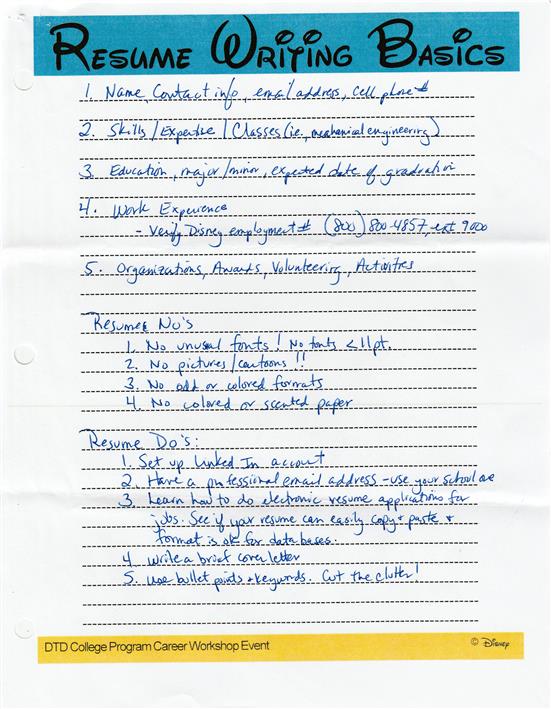 RESUME WRITING BASICS
1. Name, Contact info, email address, cell phone #
2. Skills/Expertise/Classes (ie., mechanical engineering)
3. Education, major/minor, expected date of graduation
4. Work Experience
- Verify Disney employment # (800) 800-4857, ext 9000
5. Organizations, Awards, Volunteering, Activities
Resume No's
1. No unusual fonts! No fonts < 11pt.
2. No pictures/cartoons!!
3. No odd or colored formats
4. No colored or scented paper
Resume Do's:
1. Set up Linked In account
2. Have a professional email address - use your school one
3. Learn how to do electronic resume applications for
jobs. See if your resume can easily copy + paste +
format is ok for databases.
4. Write a brief cover letter
5. Use bullet points + keywords. Cut the clutter!
DTD College Program Career Workshop Event
© Disney